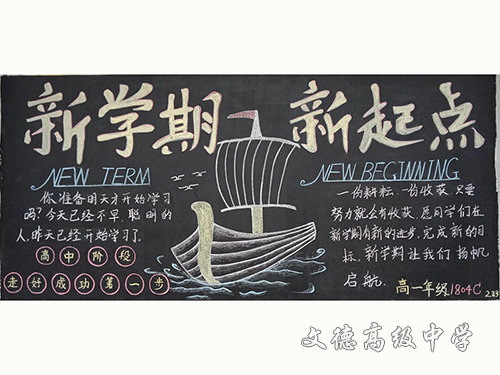 新学期 新起点
NEW TERM
你准备明天才开始学习
吗?今天已经不早,聪明的
人,昨天已经开始学习了
高中阶段
走好成功第一步
NEW BEGINNING
一份耕耘,一份收获,只要
努力就会有收获,愿同学们在
新学期有新的进步,完成新的目
标,新学期让我们扬帆
启航.
高一年级1804C
2.23
文德高级中学